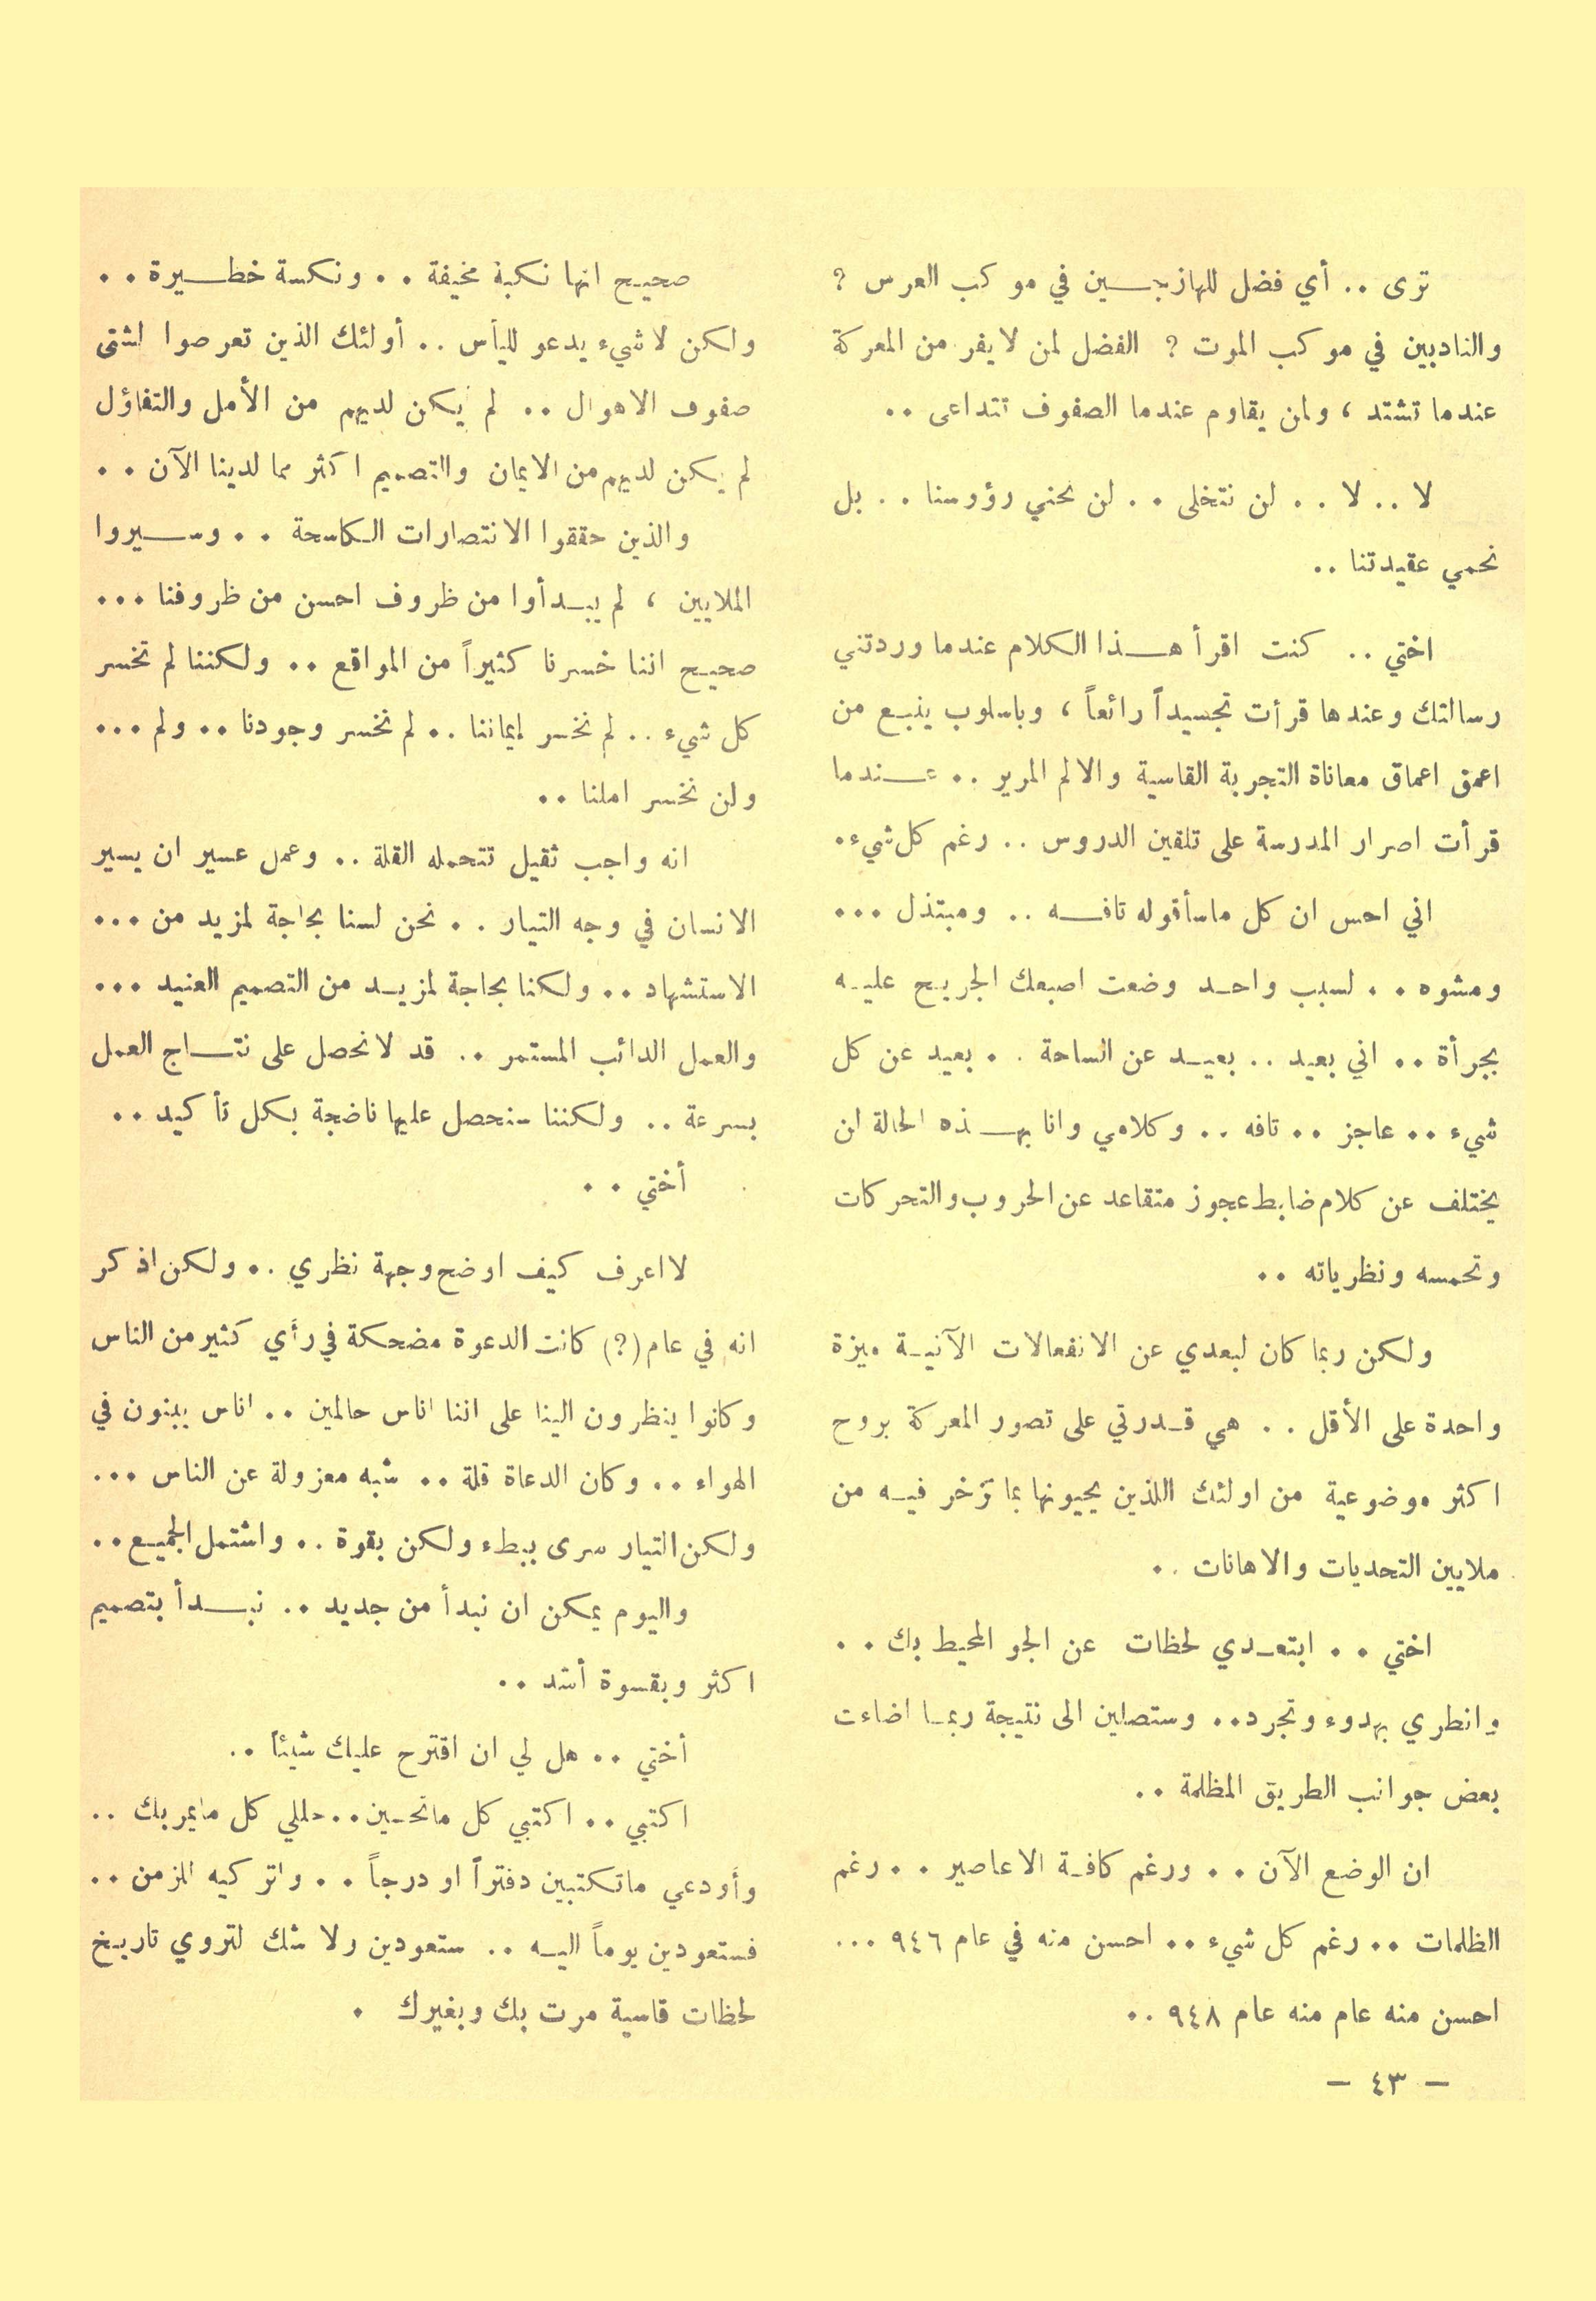 ترى .. أي فضل للهازجين في موكب العرس ؟
والنادبين في موكب الموت ؟ الفضل لمن لايفر من المعركة
عندما تشتد ، ولمن يقاوم عندما الصفوف تتداعى ..
لا .. لا .. لن نتخلى .. لن نحني رؤوسنا .. بل
نحمي عقيدتنا ..
اختي .. كنت اقرأ هذا الكلام عندما وردتني
رسالتك وعندها قرأت تجسيداً رائعاً ، وباسلوب ينبع من
اعمق اعماق معاناة التجربة القاسية والالم المرير .. عندما
قرأت اصرار المدرسة على تلقين الدروس .. رغم كل شيء .
اني احس ان كل ماسأقوله تافه .. ومبتذل ...
ومشوه .. لسبب واحد وضعت اصبعك الجريح عليه
بجرأة .. اني بعيد .. بعيد عن الساحة .. بعيد عن كل
شيء .. عاجز .. تافه .. وكلامي وانا بهذه الحالة لن
يختلف عن كلام ضابط عجوز متقاعد عن الحروب والتحركات
وتحمسه ونظرياته ..
ولكن ربما كان لبعدي عن الانفعالات الآنية ميزة
واحدة على الأقل .. هي قدرتي على تصور المعركة بروح
اكثر موضوعية من اولئك اللذين يحيونها بما تزخر فيه من
ملايين التحديات والاهانات ..
اختي .. ابتعدي لحظات عن الجو المحيط بك ..
وانطري بهدوء وتجرد .. وستصلين الى نتيجة ربما اضاءت
بعض جوانب الطريق المظلمة ..
ان الوضع الآن .. ورغم كافة الاعاصير .. رغم
الظلمات .. رغم كل شيء .. احسن منه في عام ٩٤٦ ...
احسن منه عام منه عام ٩٤٨ ..
صحيح انها نكبة مخيفة .. ونكسة خطيرة ..
ولكن لاشيء يدعو لليأس .. أولئك الذين تعرصوا لشتى
صفوف الاهوال .. لم يكن لديهم من الأمل والتفاؤل
لم يكن لديهم من الايمان والتصميم اكثر مما لدينا الآن ..
والذين حققوا الانتصارات الكاسحة .. وسيروا
الملايين ، لم يبدأوا من ظروف احسن من ظروفنا ...
صحيح اننا خسرنا كثيراً من المواقع .. ولكننا لم نخسر
كل شيء .. لم نخسر إيماننا .. لم نخسر وجودنا .. ولم ...
ولن نخسر املنا ..
انه واجب ثقيل تتحمله القلة .. وعمل عسير ان يسير
الانسان في وجه التيار .. نحن لسنا بحاجة لمزيد من ...
الاستشهاد .. ولكنا بحاجة لمزيد من التصميم العنيد ...
والعمل الدائب المستمر .. قد لانحصل على نتاج العمل
بسرعة .. ولكننا سنحصل عليها ناضجة بكل تأكيد ..
أختي ..
لااعرف كيف اوضح وجهة نظري .. ولكن اذكر
انه في عام (؟) كانت الدعوة مضحكة في رأي كثير من الناس
وكانوا ينظرون الينا على اننا اناس حالمين .. اناس يبنون في
الهواء .. وكان الدعاة قلة .. شبه معزولة عن الناس ...
ولكن التيار سرى ببطء ولكن بقوة .. واشتمل الجميع ..
واليوم يمكن ان نبدأ من جديد .. نبدأ بتصميم
اكثر وبقسوة أشد ..
أختي .. هل لي ان اقترح عليك شيئاً ..
اكتبي .. اكتبي كل ماتحسين .. حللي كل مايمر بك ..
وأودعي ماتكتبين دفتراً او درجاً .. واتركيه للزمن ..
فستعودين يوماً اليه .. ستعودين ولا شك لتروي تاريخ
لحظات قاسية مرت بك وبغيرك .
- ٤٣ -